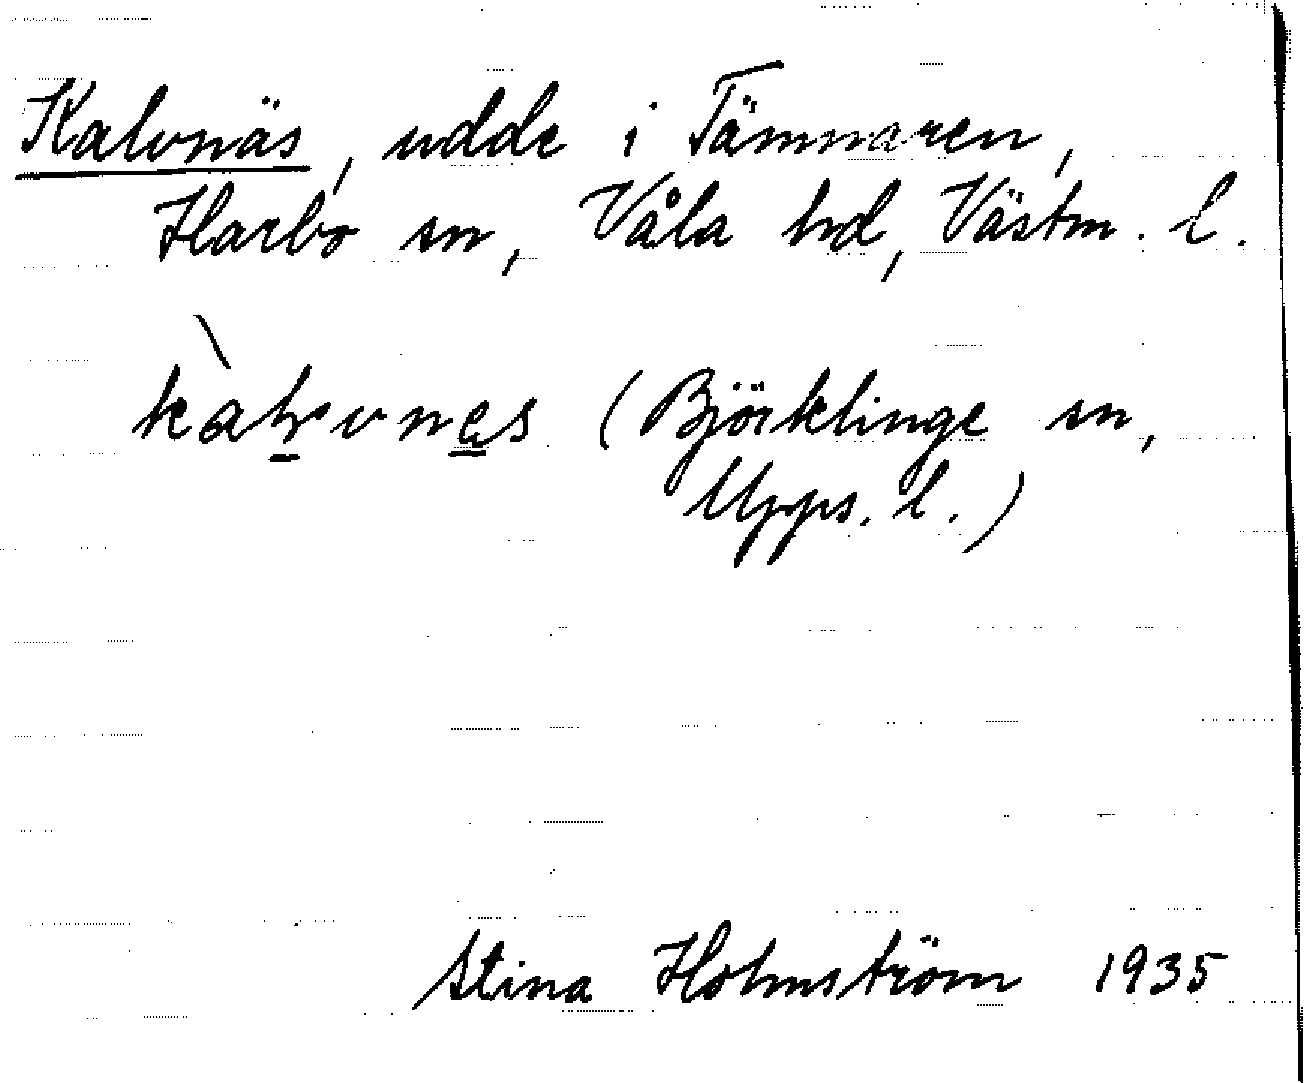 Kalvnäs, udde i Tämnaren,
Harbo sn, Våla hd, Västm. l.
(Björklinge sn,
Upps. l.)
Stina Holmström 1935